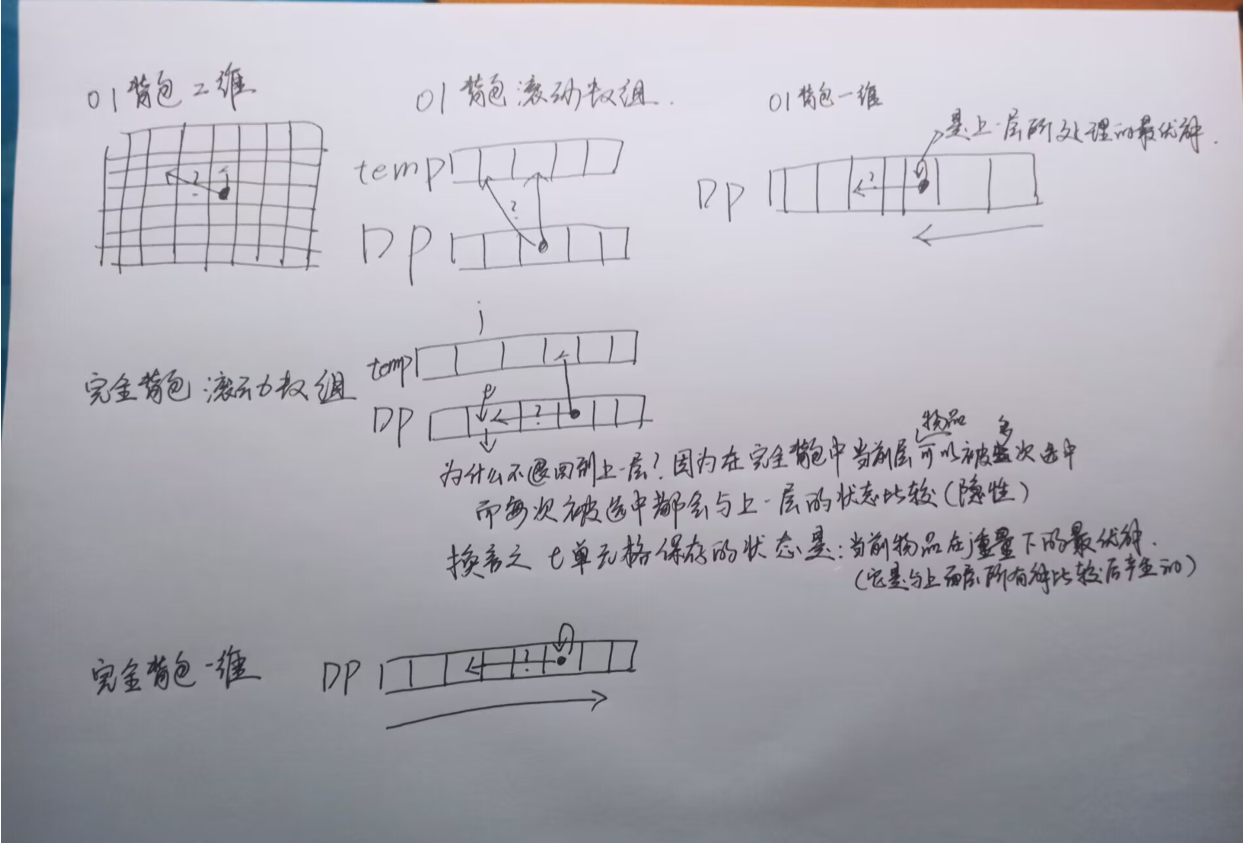 01背包二维
01背包滚动数组.
01背包一维
是上一层所处理的最优解.
temp
DP
?
?
DP
?
j
完全背包滚动数组
temp
DP
t
?
为什么不退回到上一层？因为在完全背包中当前层物品可以被多次选中
而每次被选中都会与上一层的状态比较(隐性)
换言之 t单元格保存的状态是:当前物品在j重量下的最优解.
(它是与上面层所有解比较后产生的)
完全背包一维
DP
?